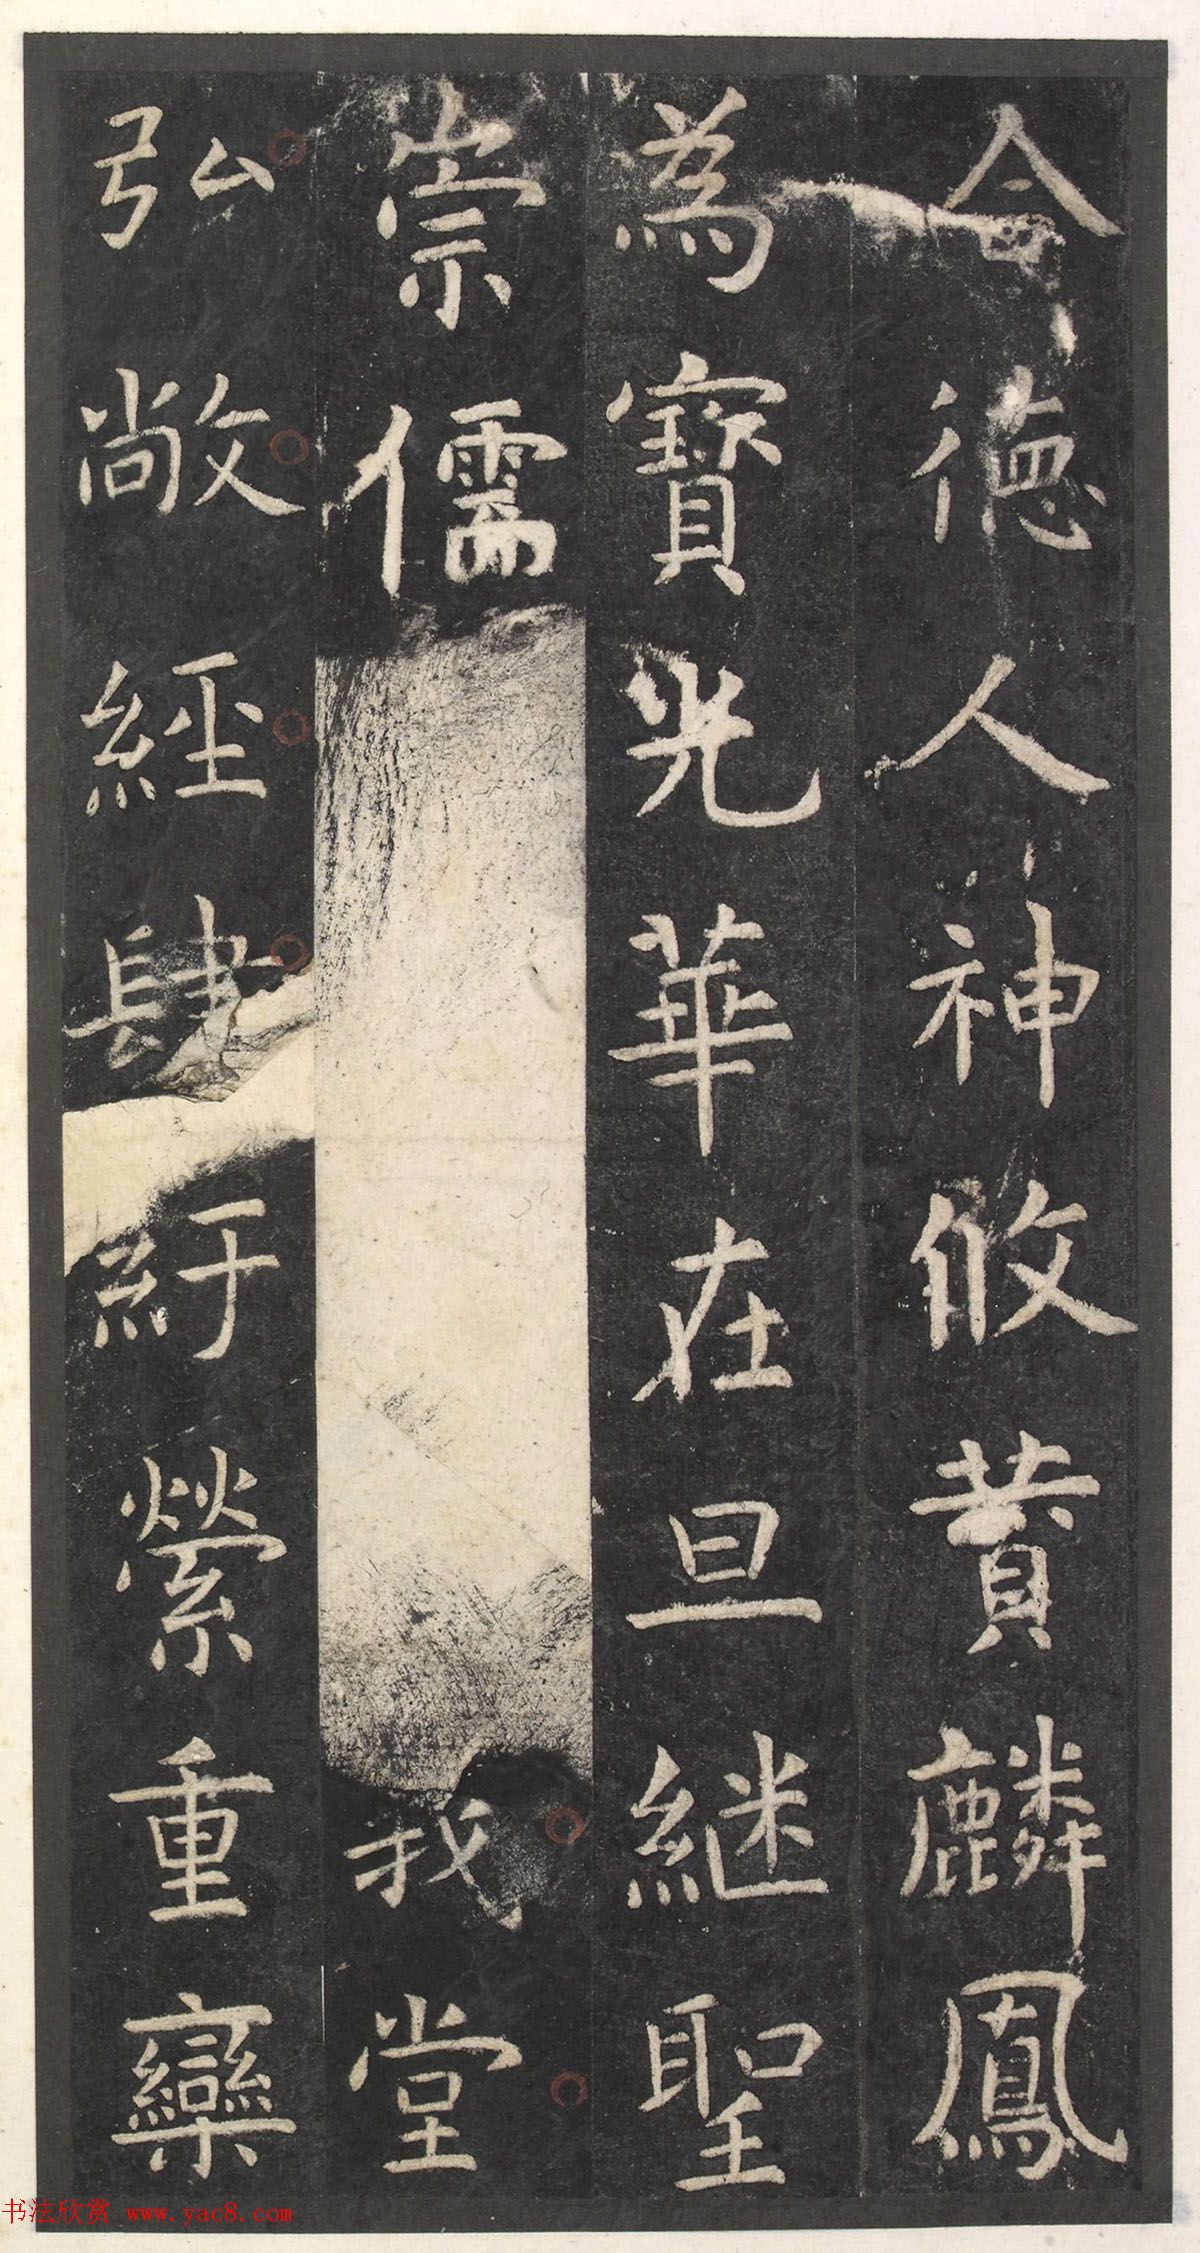 合德人神攸贊麟鳳
為寶光華在旦継聖
崇儒義堂
弘敞經肆紆縈重欒
书法欣赏 www.yac8.com